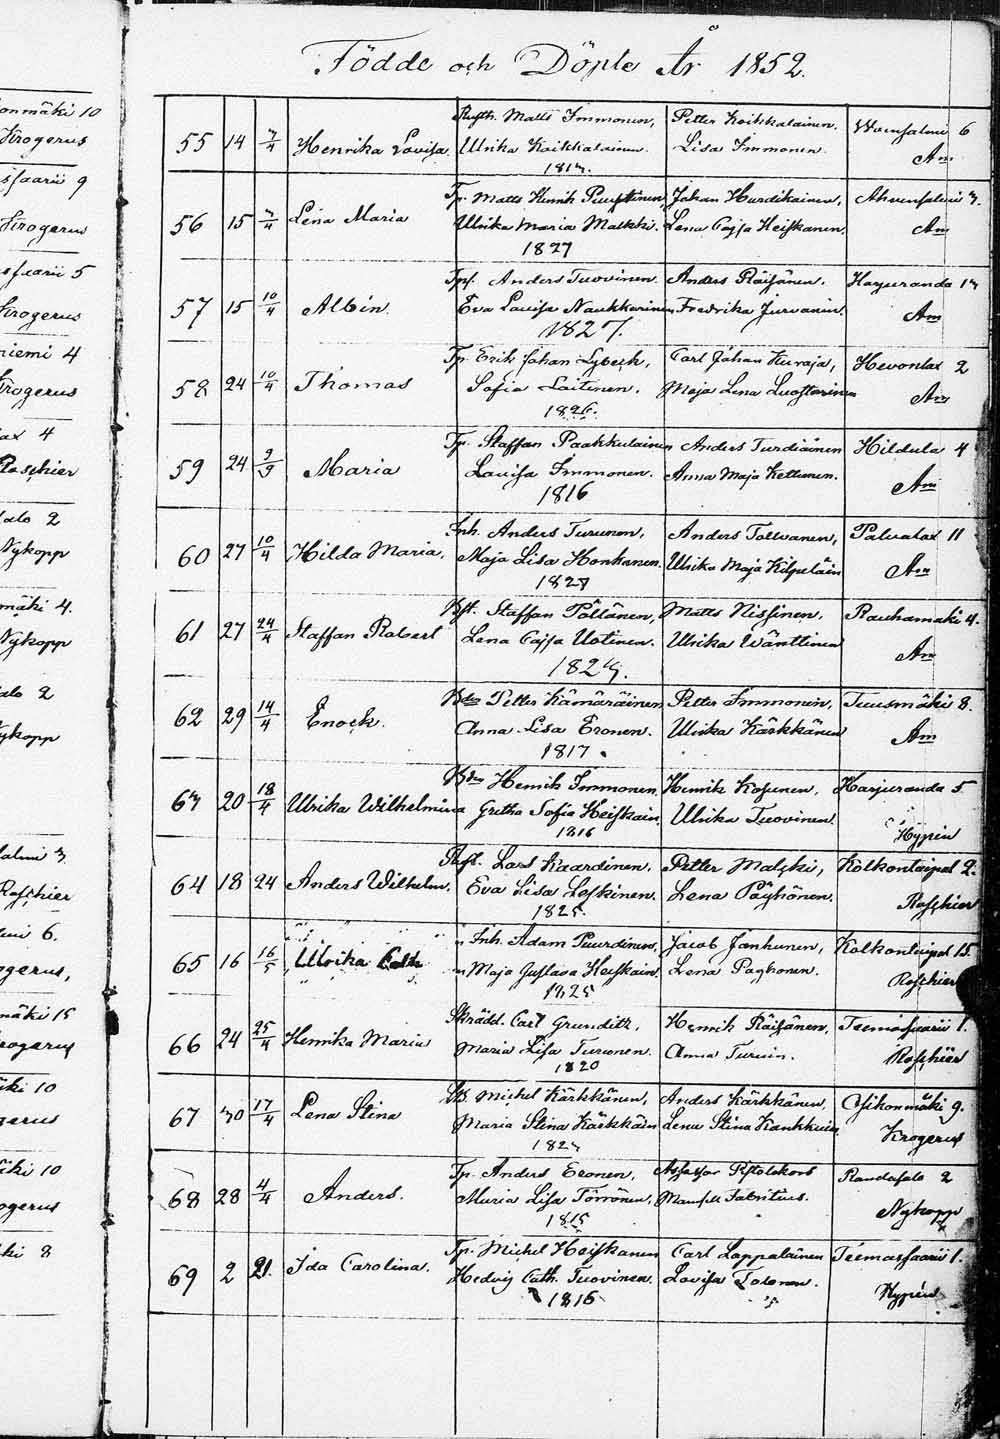 Födde och Döpte År 1852.
55 14 7/4 Henrika Lovisa. Matts Immonen, Ulrika Koikkalainen. Petter Koikkalainen. Lisa Immonen. 6 Am
56 15 7/4 Lena Maria Tp. Matts Henrik Ulrika Maria Malkki. 1827 Johan Hurdikainen, Lena Cajsa Heiskanen. Ahvensalmi 3. Am
57 15 10/4 Albin. Anders Tuovinen. Eva Lovisa Naukkarinen 1827. Anders Räisänen. Fredrika Jurvanin. Harjuranda 13 Am
58 24 10/4 Thomas Tp. Erik Johan Lybeck, Sofia Laitinen. 1826. Carl Johan Kuraja, Maja Lena Luostarinen Hevonlax 2 Am
59 24 9/9 Maria Tp. Staffan Paakkulainen Lovisa Immonen. 1816 Anders Turdiainen Anna Maja Kettunen. Hildula 4 Am
60 27 10/4 Hilda Maria, Inh. Anders Turunen, Maja Lisa Honkanen. 1827 Anders Tolvanen, Ulrika Maja Kilpeläin Palvalax 11 Am
61 27 24/4 Staffan Robert Staffan Pöllänen, Lena Cajsa Ustinen. Matts Nissinen. Ulrika Wänttinen Rauhamäki 4. Am
62 29 14/4 Enock. Petter Kämäräinen Anna Lisa Eronen. 1817. Petter Immonen, Ulrika Kärkkänen Tuusmäki 8. Am
63 20 18/4 Ulrika Wilhelmina Henrik Immonen. Gretha Sofia Heiskain. 1816 Henrik Kosunen, Ulrika Tuovinen. Harjuranda 5 Hypén
64 18 24 Anders Wilhelm. Lars Kaardinen. Eva Lisa Leskinen. 1825. Petter Malski, Lena Päyhönen. Kolkontaipal 2. Roschier
65 16 16/5 Ulrika Cath Inh. Adam Puurdinen. Maja Gustava Heiskain. 1825 Jacob Janhunen, Lena Payhonen. Kolkontaipal 15. Roschier
66 24 25/4 Henrika Maria Skrädd. Carl Grunditz, Maria Lisa Turunen. 1820 Henrik Räisänen, Anna Turuin. Teemassaarii 1. Roschier
67 30 17/4 Lena Stina Michel Kärkkänen, Maria Stina Kärkkäin Anders Kärkkänen, Lena Stina Kankkuin. Osikonmäki 9. Krogerus
68 28 4/4 Anders. Tp. Anders Eronen, Maria Lisa Törrönen. 1815 Assessor Mamsell Fabritius. Randasalo 2 Nykopp
69 2 21. Ida Carolina. Tp. Michel Heiskanen Hedvig Cath. Tuovinen. 1816 Carl Lappalainen Lovisa Tolonen. Teemassaarii 1. Hypén
onmäki 10
Krogerus
ssaarii 9
Krogerus
ssaarii 5
Krogerus
niemi 4
Krogerus
lax 4
Roschier
salo 2
Nykopp
mäki 4.
Nykopp
alo 2
Nykopp
salmi 3
Roschier
lmi 6.
ogerus,
mäki 15
rogerus
äki 10
gerus
äki 10
ogerus
ki 8